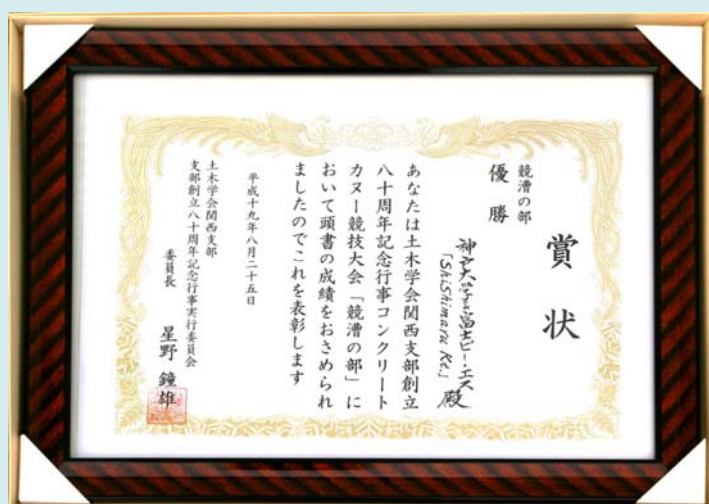 賞状
競漕の部
優勝
神戸大学・富士ピー・エス
「ShiShimaru Rt.」殿
あなたは土木学会関西支部創立
八十周年記念行事コンクリート
カヌー競技大会「競漕の部」に
おいて頭書の成績をおさめられ
ましたのでこれを表彰します
平成十九年八月二十五日
土木学会関西支部
支部創立八十周年記念行事実行委員会
委員長 星野 鐘雄